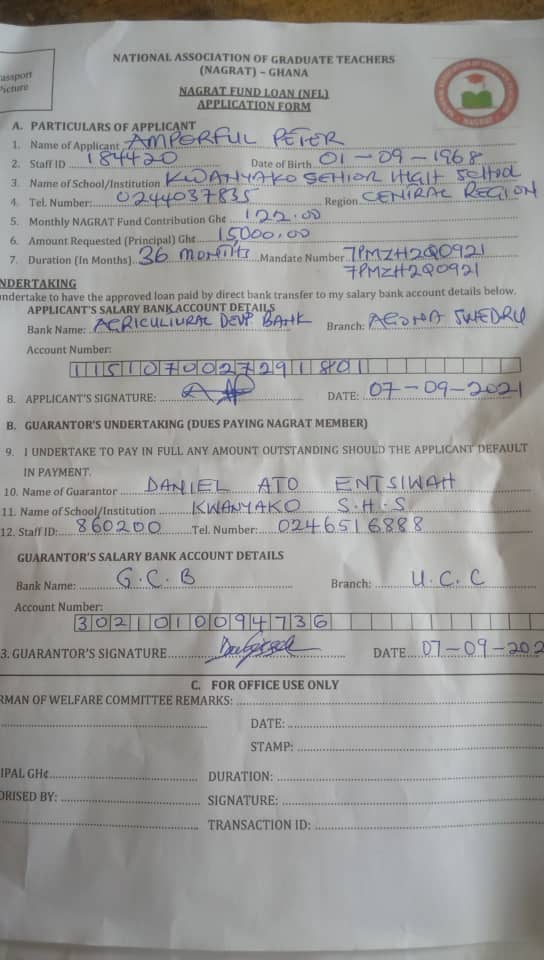 NATIONAL ASSOCIATION OF GRADUATE TEACHERS
(NAGRAT) – GHANA
assport
Picture
NAGRAT FUND LOAN (NFL)
APPLICATION FORM
NAGRAT
A. PARTICULARS OF APPLICANT
1. Name of Applicant AMPERFUL PETER
2. Staff ID 184420 Date of Birth 01-09-1968
3. Name of School/Institution KWANYAKO SENIOR HIGH SCHOOL
4. Tel. Number: 0244037835 Region CENTRAL REGION
5. Monthly NAGRAT Fund Contribution Gh¢ 122.00
6. Amount Requested (Principal) Gh¢ 15000.00
7. Duration (In Months) 36 MONTHS Mandate Number 7PMZH2Q0921
7PMZH2Q0921
NDERTAKING
undertake to have the approved loan paid by direct bank transfer to my salary bank account details below.
APPLICANT'S SALARY BANK ACCOUNT DETAILS
Bank Name: AGRICULTURAL DEVP BANK Branch: AGONA SWEDRU
Account Number:
1151070027291801
8. APPLICANT'S SIGNATURE: DATE: 07-09-2021
B. GUARANTOR'S UNDERTAKING (DUES PAYING NAGRAT MEMBER)
9. I UNDERTAKE TO PAY IN FULL ANY AMOUNT OUTSTANDING SHOULD THE APPLICANT DEFAULT
IN PAYMENT.
10. Name of Guarantor DANIEL ATO ENTSIWAH
11. Name of School/Institution KWANYAKO S.H.S
12. Staff ID: 860200 Tel. Number: 0246516888
GUARANTOR'S SALARY BANK ACCOUNT DETAILS
Bank Name: G.C.B Branch: U.C.C
Account Number:
3021010094736
3. GUARANTOR'S SIGNATURE DATE 07-09-202
C. FOR OFFICE USE ONLY
RMAN OF WELFARE COMMITTEE REMARKS:
DATE:
STAMP:
IPAL GH¢ DURATION:
ORISED BY: SIGNATURE:
TRANSACTION ID: